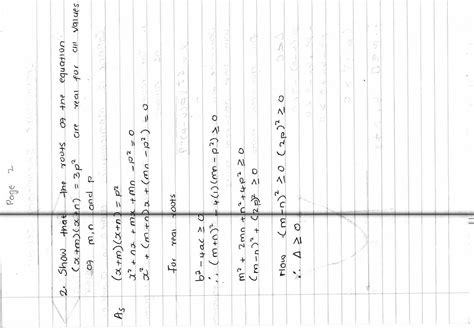 Page 2
2. Show that the roots of the equation
(x+m)(x+n) = 3p² are real for all values
of m,n and p
As (x+m)(x+n) = p²
x² + nx + mx + mn - p² = 0
x² + (m+n)x + (mn - p²) = 0
for real roots
b² - 4ac ≥ 0
∴ (m+n)² - 4(1)(mn-p²) ≥ 0
m² + 2mn + n² + 4p² ≥ 0
(m-n)² + (2p)² ≥ 0
Now (m-n)² ≥ 0 (2p)² ≥ 0
∴ Δ ≥ 0